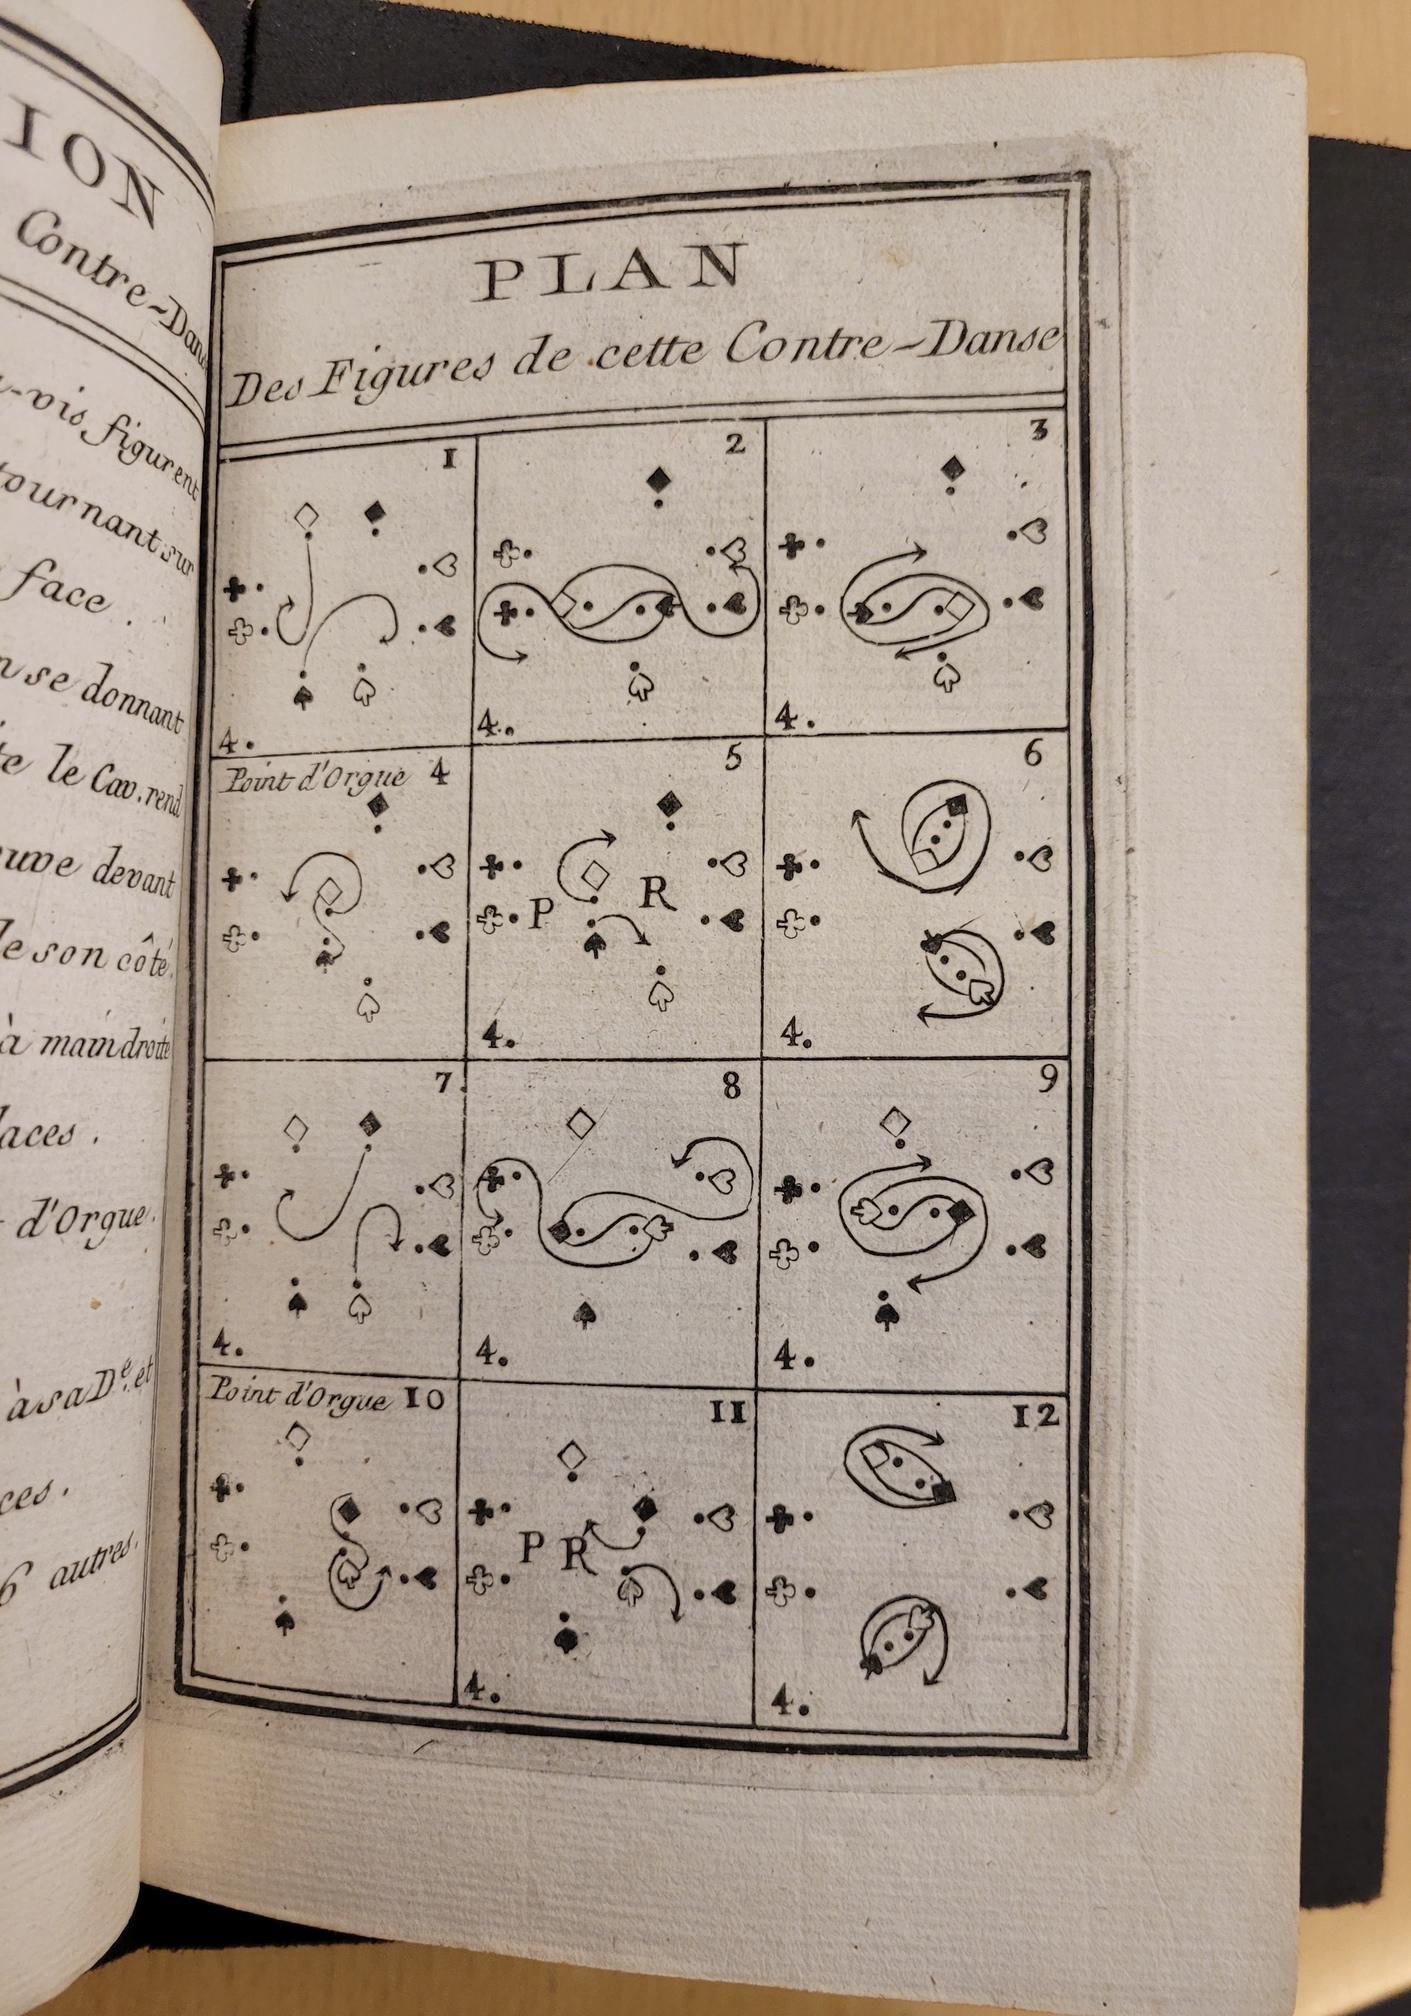 ION
Contre-Dans
-vis figurent
tournant sur
face
se donnant
te le Cav. rend
uve devant
de son côté.
à main droite
laces.
d'Orgue.
à sa De. et
ces.
6 autres.
PLAN
Des Figures de cette Contre-Danse
1
4.
2
4.
3
4.
Point d'Orgue 4
5
P R
4.
6
4.
7.
4.
8
4.
9
4.
Point d'Orgue 10
11
P R
4.
12
4.